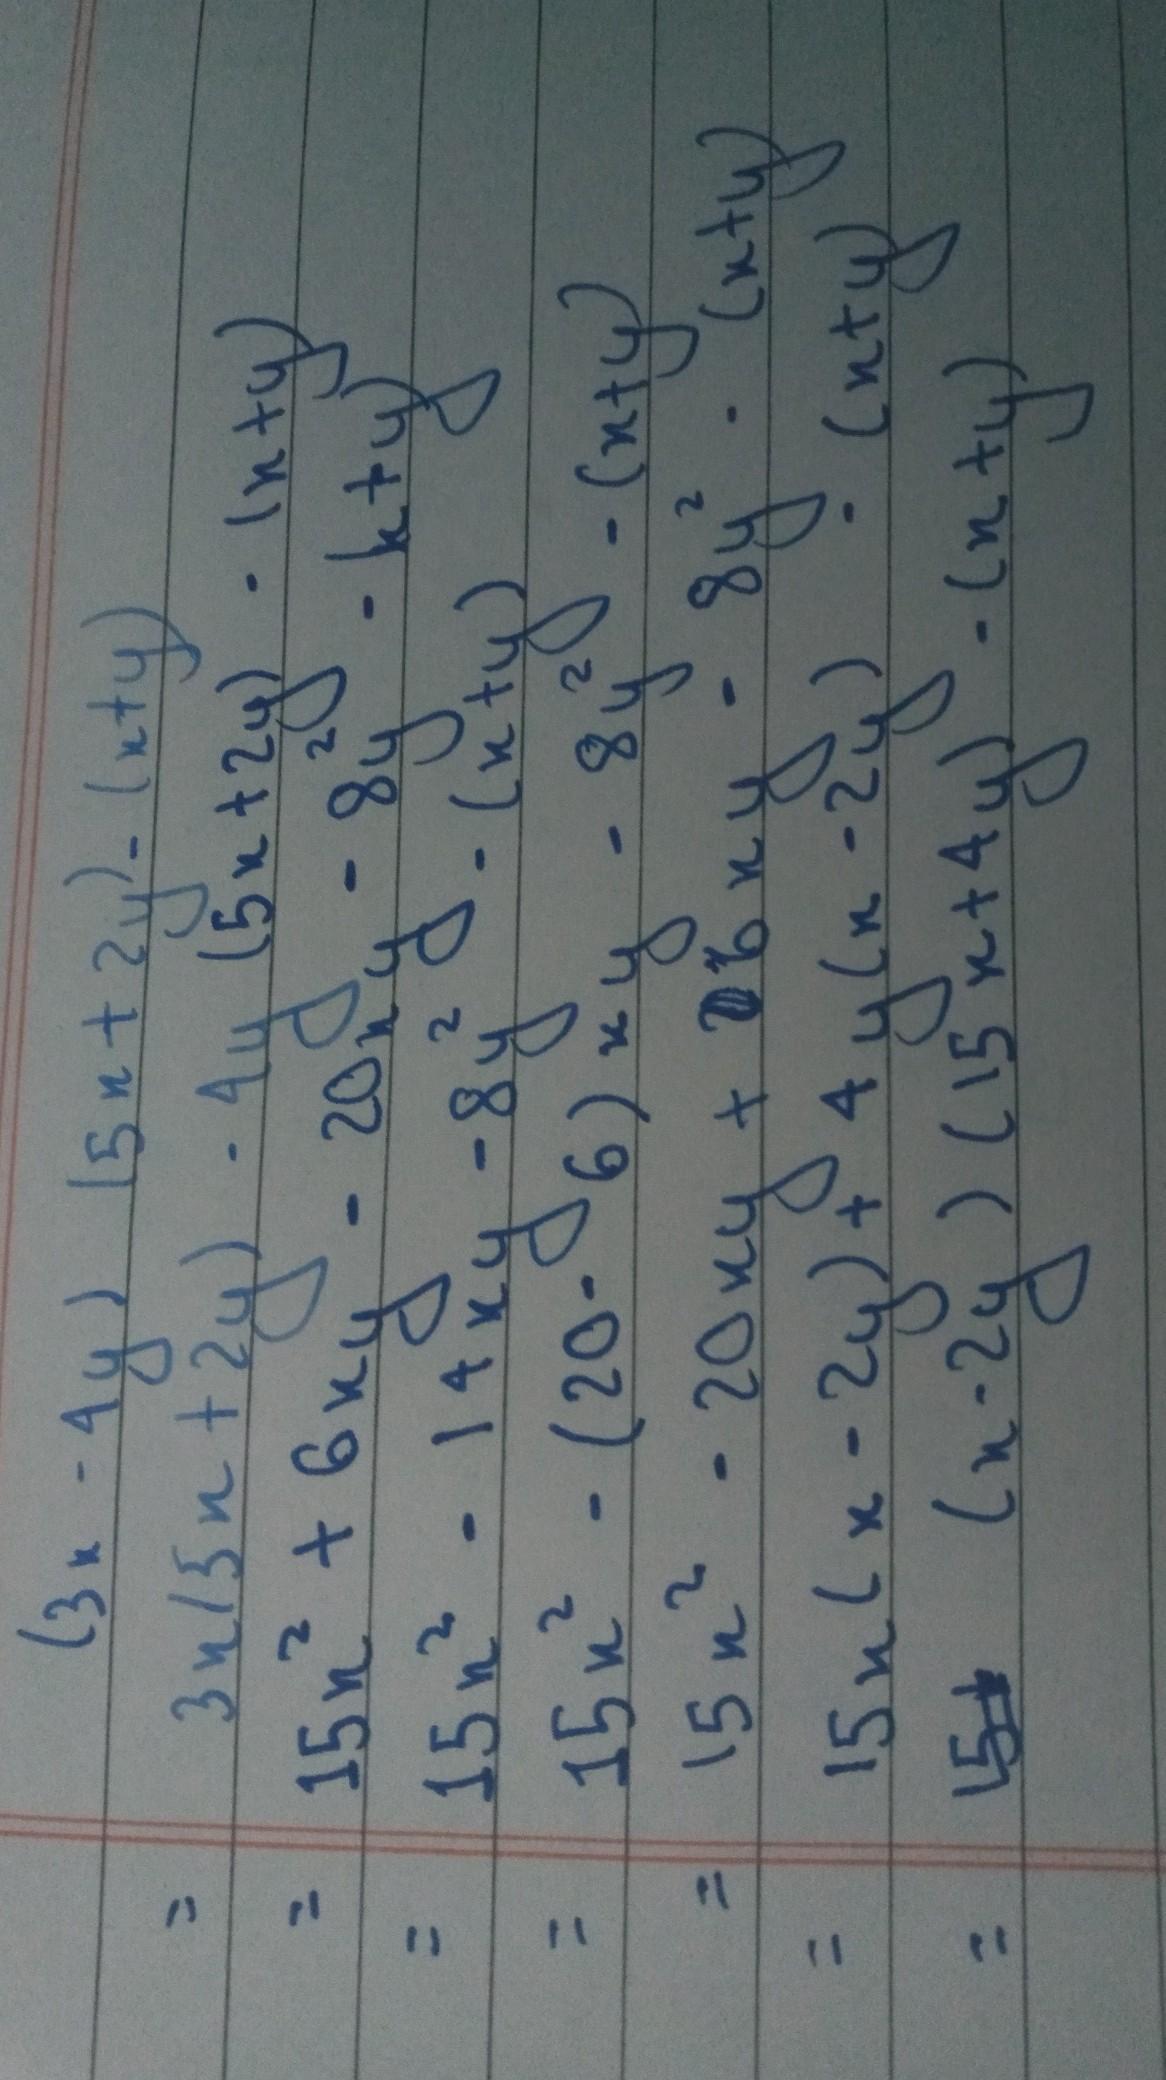 (3x - 4y) (5x + 2y) - (x+y)
= 3x(5x + 2y) - 4y (5x+2y) - (x+y)
= 15x² + 6xy - 20xy - 8y² - (x+y)
= 15x² - 14xy - 8y² - (x+y)
= 15x² - (20-6)xy - 8y² - (x+y)
= 15x² - 20xy + 6xy - 8y² - (x+y)
= 15x(x - 2y) + 4y(x - 2y) - (x+y)
= (x-2y) (15x+4y) - (x+y)